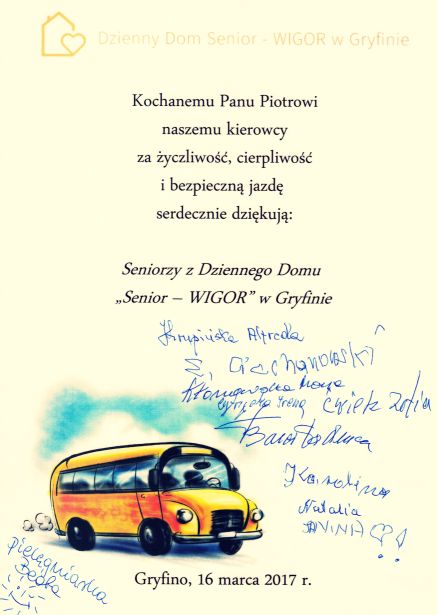 Dzienny Dom Senior - WIGOR w Gryfinie
Kochanemu Panu Piotrowi
naszemu kierowcy
za życzliwość, cierpliwość
i bezpieczną jazdę
serdecznie dziękują:
Seniorzy z Dziennego Domu
„Senior – WIGOR” w Gryfinie
Krupińska Alfreda
Ciechanowski
Irena Ćwiek Zofia
Karolina
Natalia
JANINA
Pielęgniarka
Beata
Gryfino, 16 marca 2017 r.